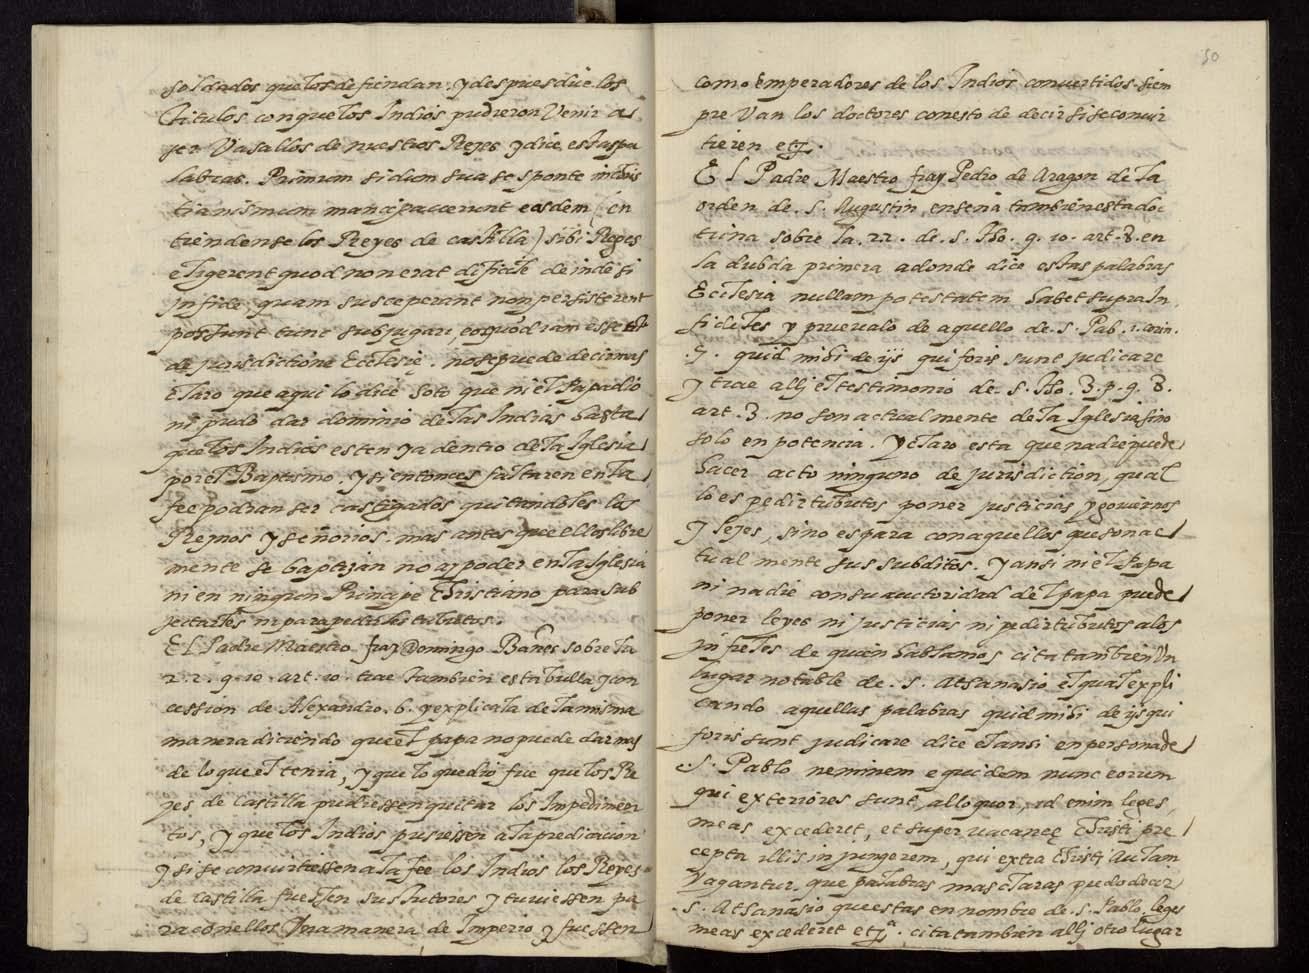 soldados que los defiendan; y despues dice los
titulos con que los Indios pudieron Venir a
ser Vasallos de nuestros Reyes y dice estas pa
labras. Primum si dum sua se sponte in chris
tianismum mancipaverunt eosdem (en
tiendense los Reyes de castilla) sibi Reges
eligerent quod non erat dificile deinde si
in fide, quam susceperant non persisterent
possunt tunc subjugari, eo quod iam esse
de jurisdictione Ecclesię. no se puede decir mas
claro que aqui lo dice soto que ni el Papa dio
ni pudo dar dominio de las Indias hasta
que los Indios esten ya dentro de la Iglesia
por el Baptismo. y si entonces faltaren en la
fee podran ser castigados quitandoles los
Reynos y señorios. mas antes que ellos libre
mente se baptizan no ay poder en la Iglesia
ni en ningun Principe Christiano para sub
jectarles ni para pedirles tributos.
El Padre Maestro fray Domingo Bañes sobre la
2. 2. q. 10. art. 10. trae tambien esta bulla y con
cession de Alexandro. 6. y explicala de la misma
manera diciendo que el papa no puede dar mas
de lo que el tenia, y que lo que dio fue que los Re
yes de Castilla pudiessen quitar los Impedimen
tos, y que los Indios pusiessen a la predicacion
y si se convirtiessen a la fee los Indios los Reyes
de Castilla fuessen sus tutores y tuviessen pa
ra con ellos Una manera de Imperio y fuessen
50
como Emperadores de los Indios convertidos. siem
pre Van los doctores con esto de decir si se convir
tieren etc.
El Padre Maestro fray Pedro de Aragon de la
orden de. S. Augustin, enseña tambien esta doc
trina sobre la. 22. de. S. Tho. q. 10. art. 8. en
la dubda primera adonde dice estas palabras
Ecclesia nullam potestatem habet supra In
fideles y pruevalo de aquello de. S. Pab. 1. corin.
5. quid mihi de ijs qui foris sunt judicare
y trae allj el testimonio de. S. Tho. 3. p. q. 8.
art. 3. no son actualmente de la Iglesia sino
solo en potencia. y claro esta que nadie puede
hacer acto ninguno de jurisdiction, qual
lo es pedir tributos poner justicias y governos
y leyes, sino es para con aquellos que son ac
tualmente sus subditos. y ansi ni el Papa
ni nadie con su auctoridad del papa puede
poner leyes ni justicias ni pedir tributos a los
infieles de quien hablamos cita tambien Un
lugar notable de. S. Athanasio el qual expli
cando aquellas palabras quid mihi de ijs qui
foris sunt judicare dice el ansi en persona de
S. Pablo neminem equidem nunc eorum
qui exteriores sunt, alloquor, id enim leges
meas excederet, et supervacanee Christi pre
cepta illis injungerem, qui extra Christi Aulam
Vagantur. que palabras mas claras pudo decir
S. Athanasio que estas en nombre de. S. Pablo, leges
meas excederet etc.ª cita tambien allj otro lugar